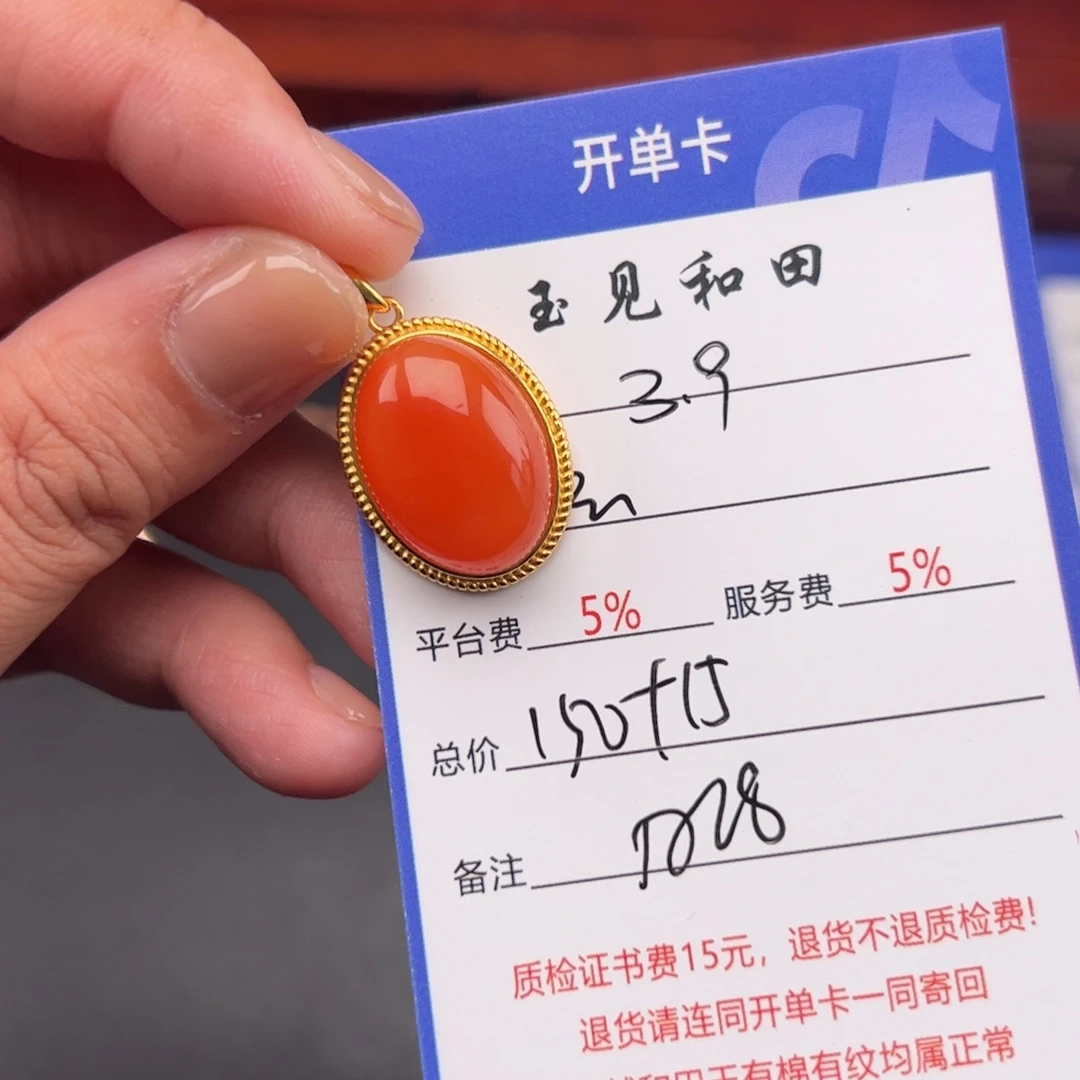 开单卡
玉见和田
3.9
平台费 5% 服务费 5%
总价 150+15
备注 D28
质检证书费15元，退货不退质检费!
退货请连同开单卡一同寄回
和田玉有棉有纹均属正常